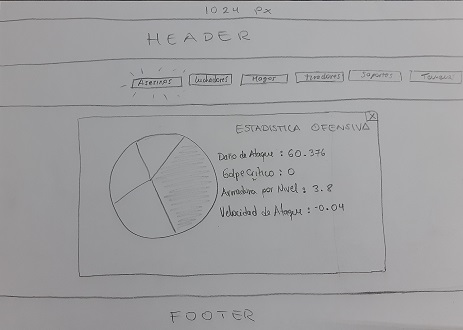 1024 px
HEADER
Asesinos Luchadores Magos Tiradores Soportes Tanques
X
ESTADISTICA OFENSIVA
Daño de Ataque : 60.376
Golpe Crítico : 0
Armadura por Nivel : 3.8
Velocidad de Ataque : -0.04
FOOTER